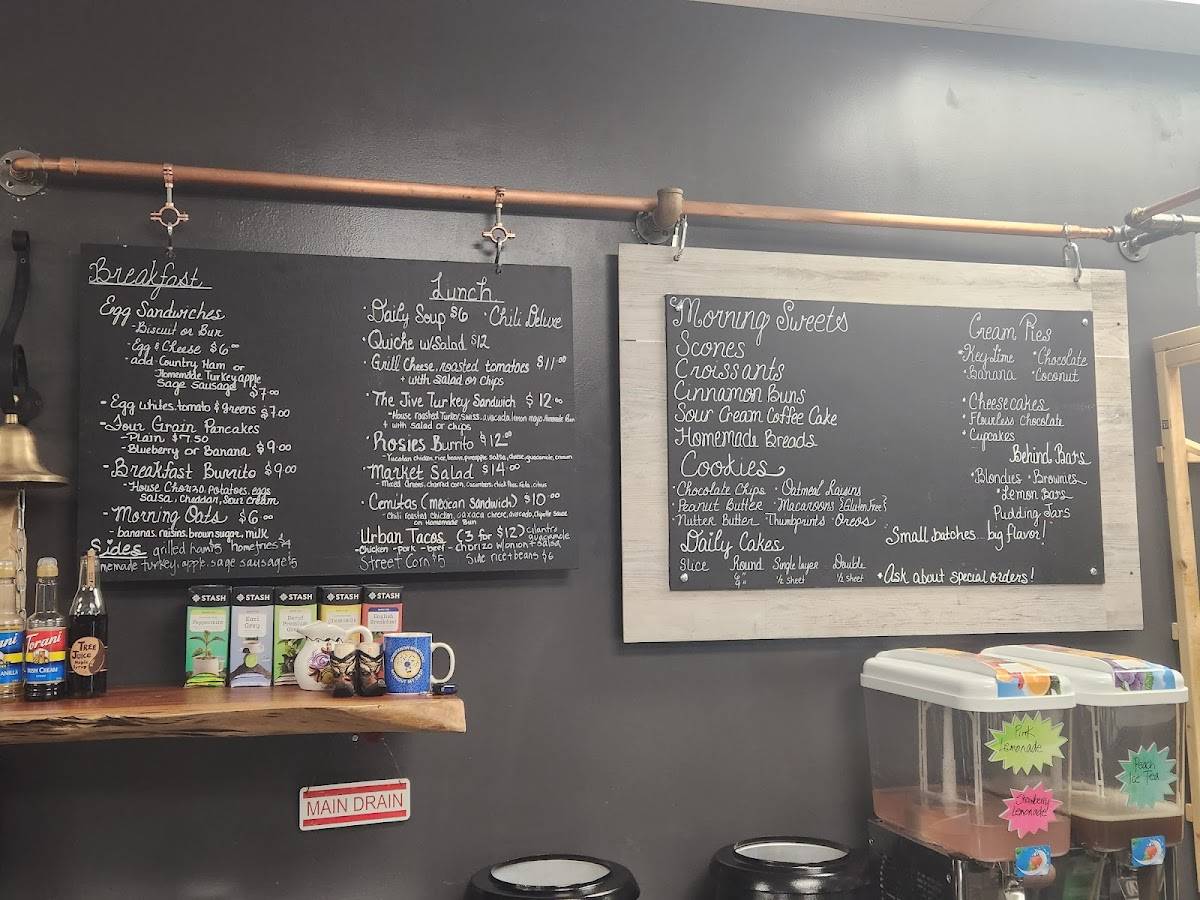 Breakfast
Egg Sandwiches
-Biscuit or Bun
-Egg & Cheese $6.00
-add Country Ham or
Homemade Turkey, apple
Sage Sausage $7.00
-Egg whites, tomato & greens $7.00
-Four Grain Pancakes
-Plain $7.50
-Blueberry or Banana $9.00
-Breakfast Burrito $9.00
-House Chorizo, potatoes, eggs
salsa, cheddar, sour cream
-Morning Oats $6.00
bananas, raisins, brown sugar, milk
Sides grilled ham $5 homefries $4
memade turkey, apple, sage sausage $5
Lunch
·Daily Soup $6 ·Chili Deluxe
·Quiche w/Salad $12
·Grill Cheese, roasted tomatoes $11.00
+ with salad or chips
·The Jive Turkey Sandwich $12.00
-House roasted Turkey, Swiss, avocado, lemon mayo, Homemade
+ with salad or chips
·Rosies Burrito $12.00
-Yucatan chicken, rice, beans, pineapple salsa, cheese, guacamole, cream
·Market Salad $14.00
-Mixed Greens, charred corn, cucumbers, chick peas, Feta, citrus
·Cemitas (mexican Sandwich) $10.00
-Chili roasted chicken, oaxaca cheese, avocado, chipotle sauce
on Homemade Bun
Urban Tacos (3 for $12) cilantro
guacamole
-chicken -pork -beef -chorizo w/onion + salsa
Street Corn $5 Side rice + beans $6
Morning Sweets
Scones
Croissants
Cinnamon Buns
Sour Cream Coffee Cake
Homemade Breads
Cookies
·Chocolate Chips ·Oatmeal Raisins
·Peanut Butter ·Macaroons {Gluten Free}
·Nutter Butter ·Thumbprints ·Oreos
Daily Cakes
Slice Round Single layer Double
6" ½ sheet ½ sheet
Cream Pies
·Key Lime ·Chocolate
·Banana ·Coconut
·Cheesecakes
·Flourless Chocolate
·Cupcakes
Behind Bars
·Blondies ·Brownies
·Lemon Bars
Pudding Jars
Small batches... big flavor!
*Ask about special orders!
STASH
Peppermint
STASH
Earl Grey
STASH
Premium Green
STASH
Chamomile
STASH
English Breakfast
Torani
VANILLA
Torani
IRISH CREAM
TREE
JUICE
Maple
Syrup
MAIN DRAIN
Pink
Lemonade
Strawberry
Lemonade
Peach
Ice Tea